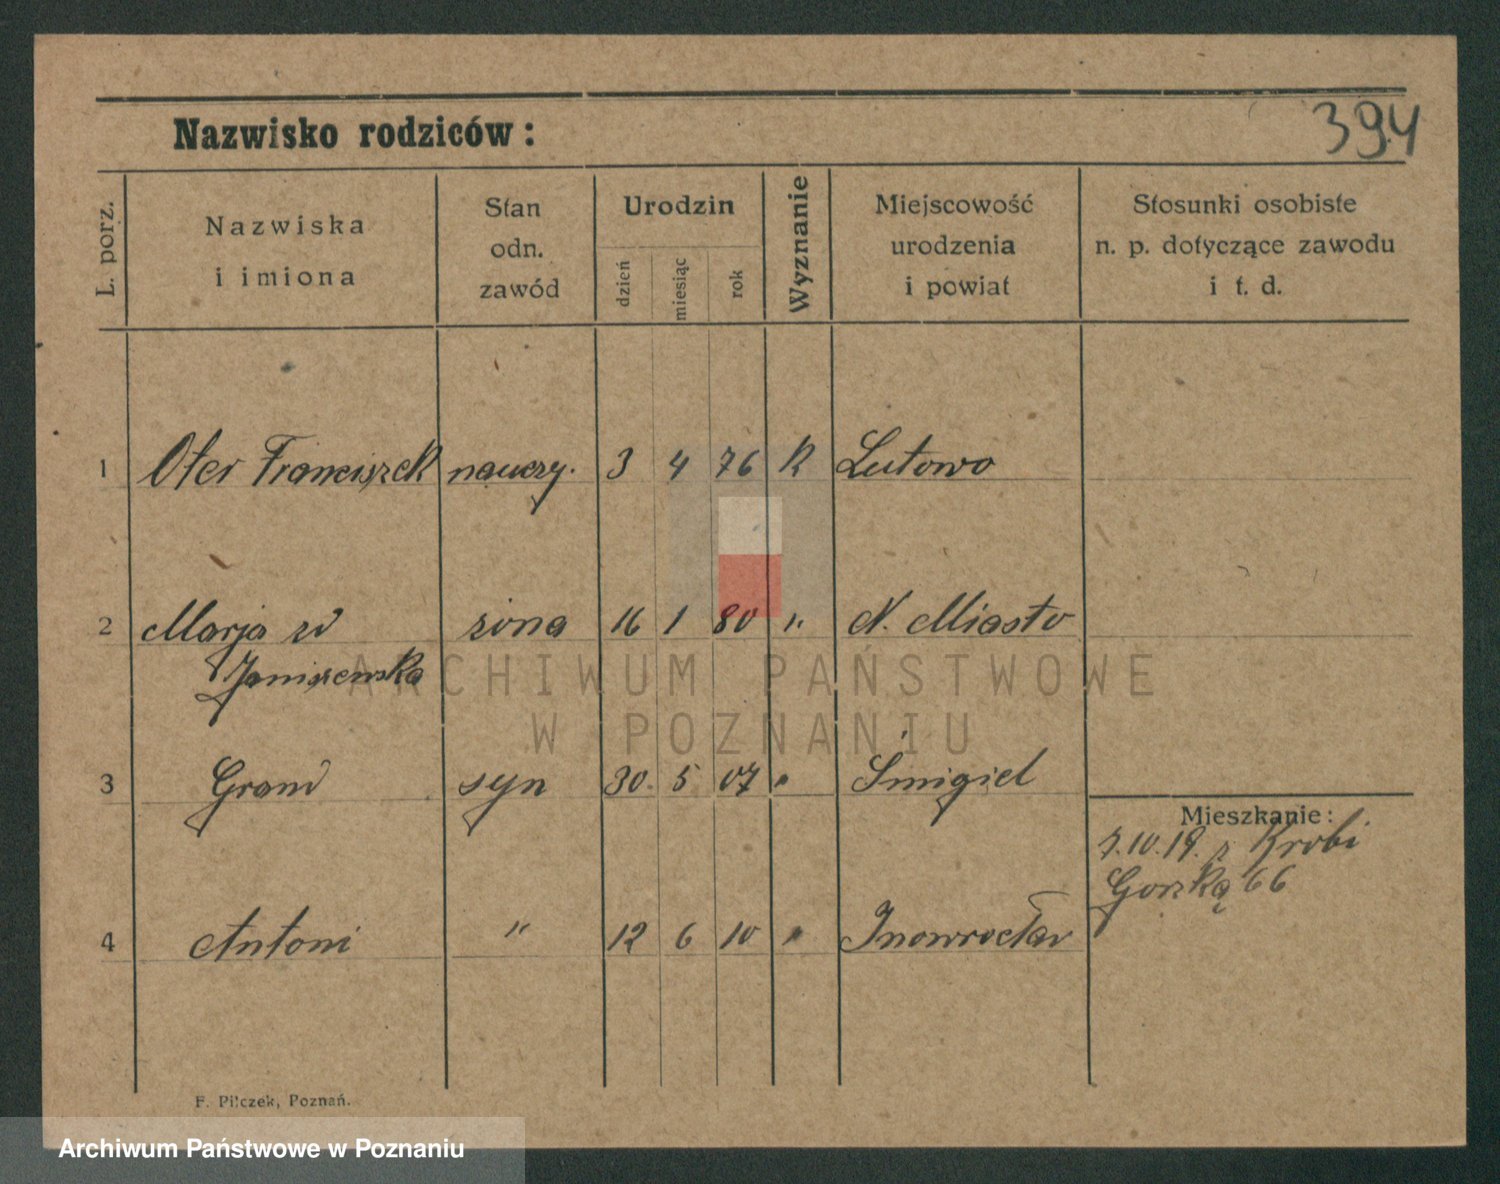 394
Nazwisko rodziców:
L. porz.
Nazwiska
i imiona
Stan
odn.
zawód
Urodzin
dzień
miesiąc
rok
Wyznanie
Miejscowość
urodzenia
i powiat
Stosunki osobiste
n. p. dotyczące zawodu
i t. d.
1 Oter Franciszek nauczy. 3 4 76 K Lutowo
2 Marja zd żona 16 1 80 " N. Miasto
Janiszewska
3 syn 30. 5 07 " Śmigiel
Mieszkanie:
7.10.19. z Krobi
66
4 Antoni " 12 6 10 " Inowrocław
F. Pilczek, Poznań.
ARCHIWUM PAŃSTWOWE
W POZNANIU
Archiwum Państwowe w Poznaniu